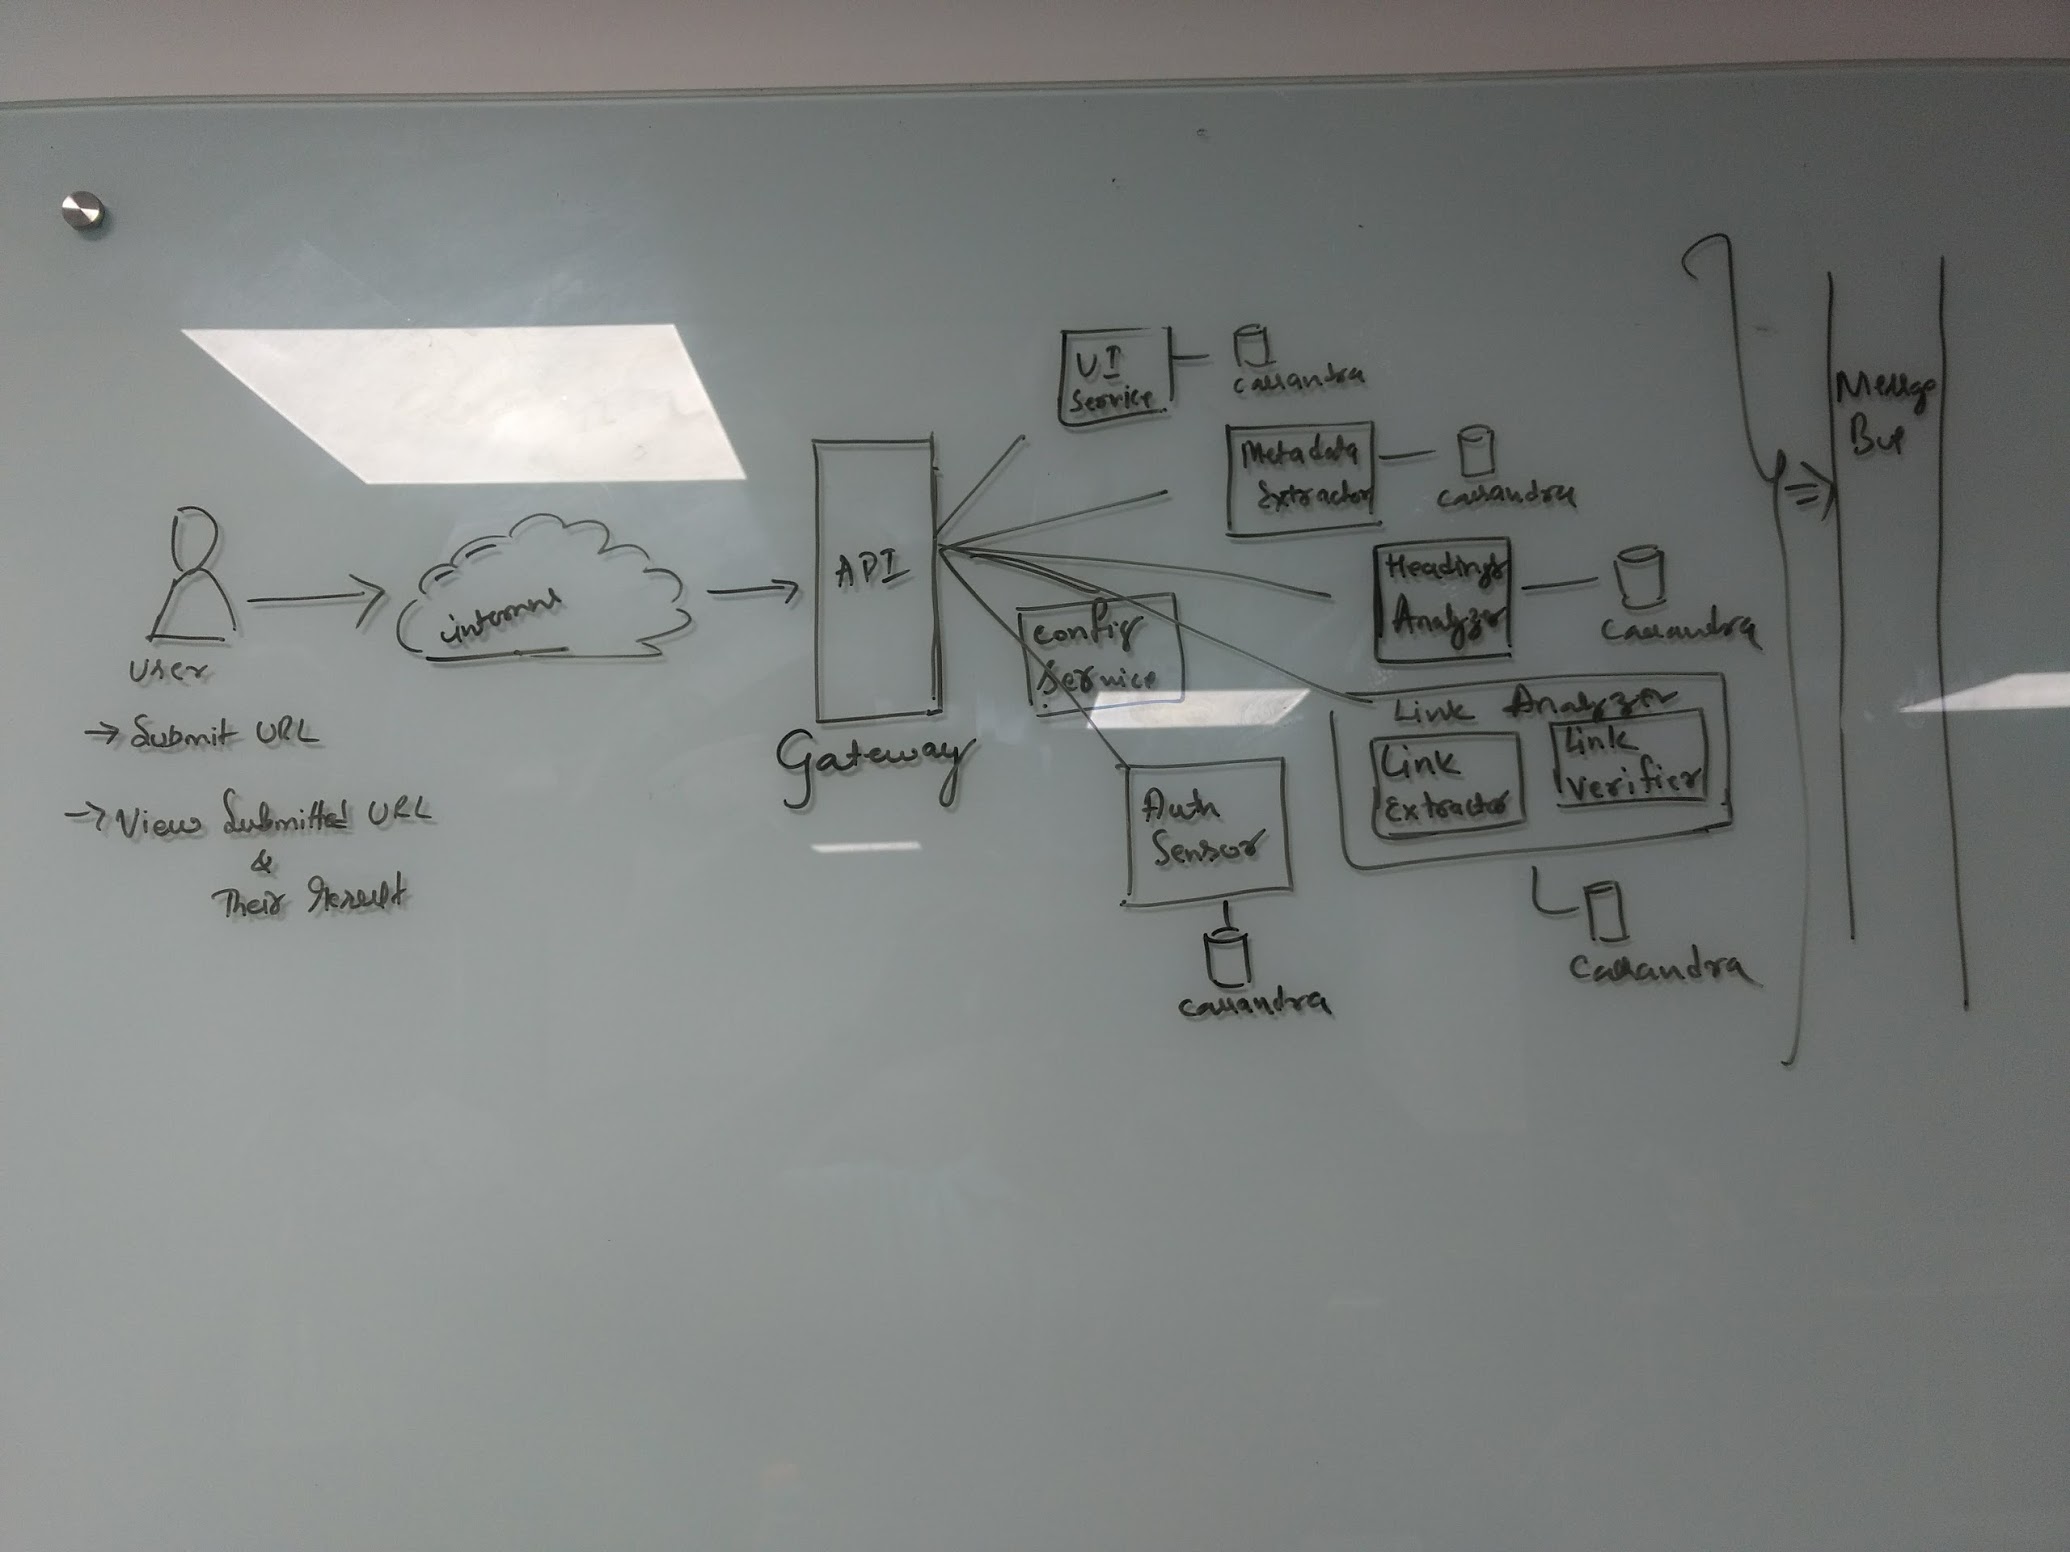 User
→ Submit URL
→ View Submitted URL
&
Their Result
internet
API
Gateway
UI
Service
Cassandra
Metadata
Extractor
Cassandra
Headings
Analyzer
Cassandra
Config
Service
Link Analyzer
Link
Extractor
Link
Verifier
Cassandra
Auth
Sensor
Cassandra
Message
Bus